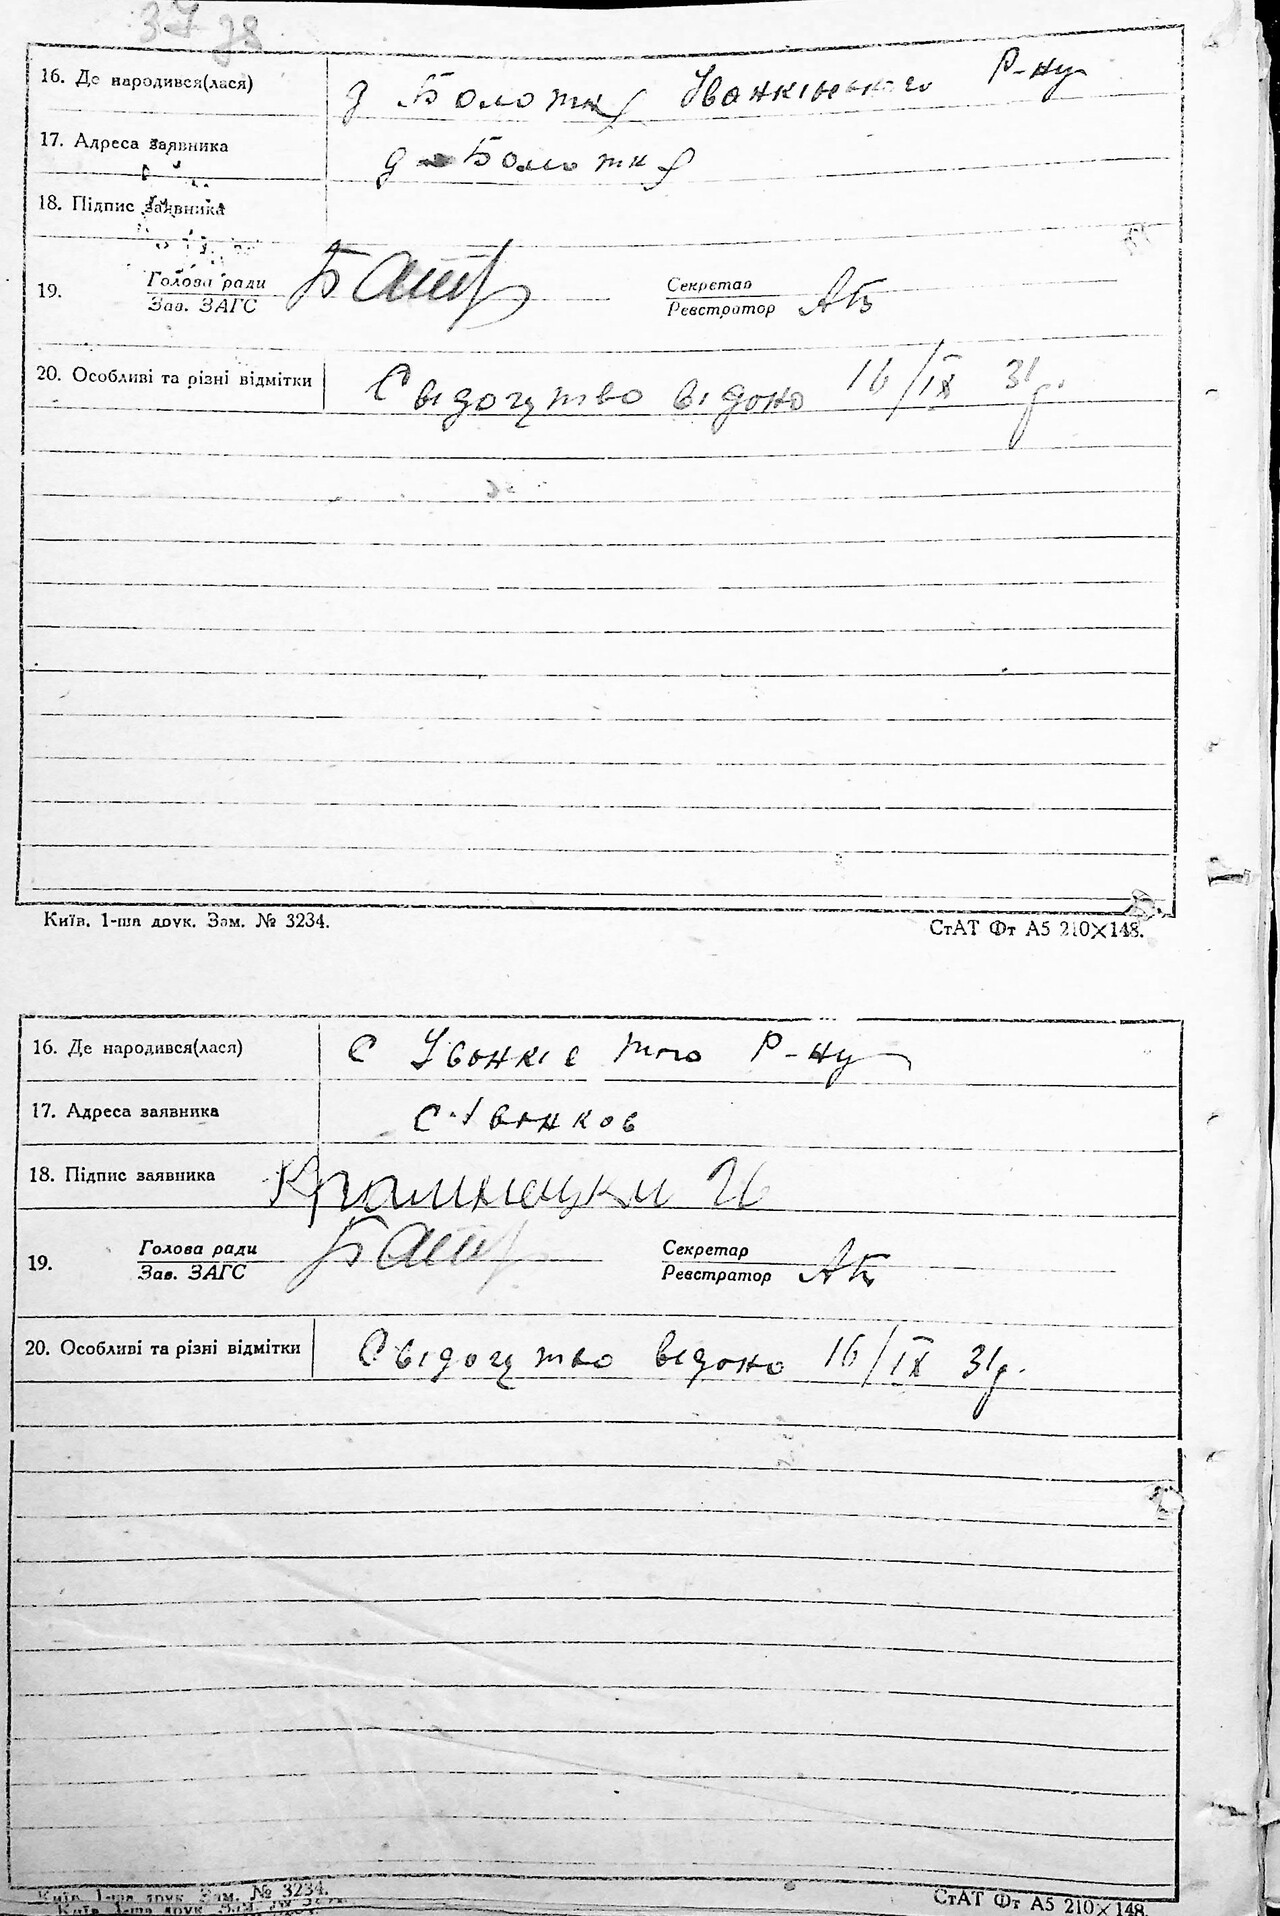 37 38
16. Де народився(лася) д Болотня Іванківського Р-ну
17. Адреса заявника д Болотня
18. Підпис заявника
19. Голова ради Секретар
Зав. ЗАГС Реєстратор
20. Особливі та різні відмітки Свідоцтво відоно 16/IX 31р.
Київ. 1-ша друк. Зам. № 3234. СтАТ Фт А5 210×148.
16. Де народився(лася) С Іванків того Р-ну
17. Адреса заявника с. Іванков
18. Підпис заявника
19. Голова ради Секретар
Зав. ЗАГС Реєстратор
20. Особливі та різні відмітки Свідоцтво відоно 16/IX 31р.
Київ. 1-ша друк. Зам. № 3234. СтАТ Фт А5 210×148.
Київ 1-ша друк